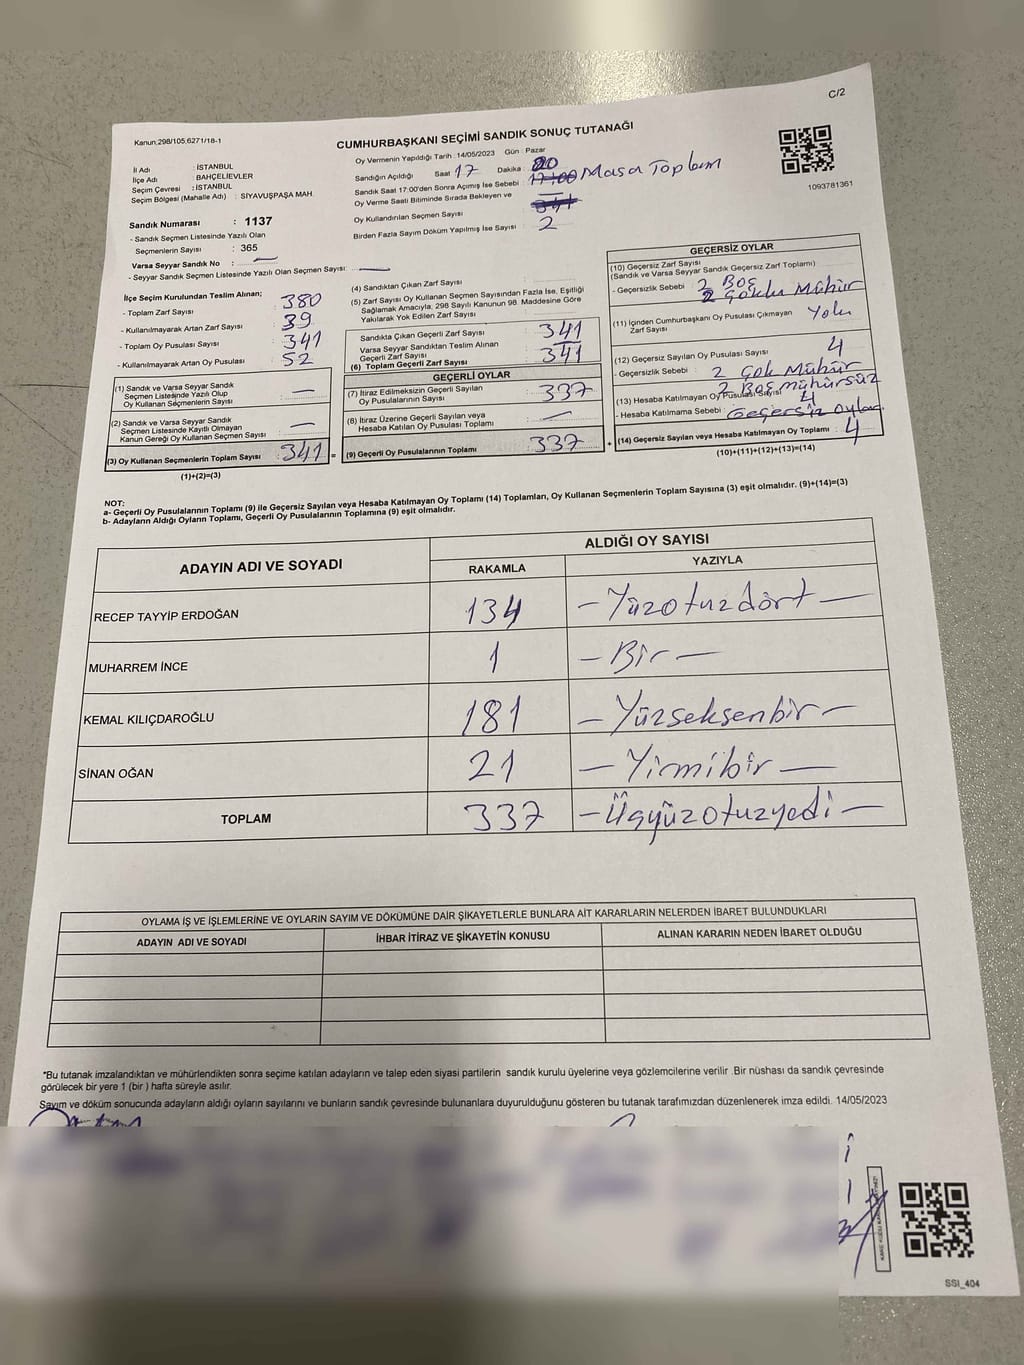 C/2
Kanun;298/105;6271/18-1
CUMHURBAŞKANI SEÇİMİ SANDIK SONUÇ TUTANAĞI
İl Adı : İSTANBUL
İlçe Adı : BAHÇELİEVLER
Seçim Çevresi : İSTANBUL
Seçim Bölgesi (Mahalle Adı) : SİYAVUŞPAŞA MAH.
Oy Vermenin Yapıldığı Tarih : 14/05/2023 Gün : Pazar
Sandığın Açıldığı Saat 17 Dakika : 00
Sandık Saat 17:00'den Sonra Açımış İse Sebebi : 17:00 Masa Toplam
Oy Verme Saati Bitiminde Sırada Bekleyen ve
Oy Kullandırılan Seçmen Sayısı : 341
Birden Fazla Sayım Döküm Yapılmış İse Sayısı : 2
1093781361
Sandık Numarası : 1137
- Sandık Seçmen Listesinde Yazılı Olan
Seçmenlerin Sayısı : 365
Varsa Seyyar Sandık No : —
- Seyyar Sandık Seçmen Listesinde Yazılı Olan Seçmen Sayısı: —
İlçe Seçim Kurulundan Teslim Alınan;
- Toplam Zarf Sayısı : 380
- Kullanılmayarak Artan Zarf Sayısı : 39
- Toplam Oy Pusulası Sayısı : 341
- Kullanılmayarak Artan Oy Pusulası : 52
(1) Sandık ve Varsa Seyyar Sandık
Seçmen Listesinde Yazılı Olup
Oy Kullanan Seçmenlerin Sayısı : —
(2) Sandık ve Varsa Seyyar Sandık
Seçmen Listesinde Kayıtlı Olmayan
Kanun Gereği Oy Kullanan Seçmen Sayısı : —
(3) Oy Kullanan Seçmenlerin Toplam Sayısı : 341 =
(1)+(2)=(3)
(4) Sandıktan Çıkan Zarf Sayısı :
(5) Zarf Sayısı Oy Kullanan Seçmen Sayısından Fazla İse, Eşitliği
Sağlamak Amacıyla; 298 Sayılı Kanunun 98. Maddesine Göre
Yakılarak Yok Edilen Zarf Sayısı :
Sandıkta Çıkan Geçerli Zarf Sayısı : 341
Varsa Seyyar Sandıktan Teslim Alınan
Geçerli Zarf Sayısı : —
(6) Toplam Geçerli Zarf Sayısı : 341
GEÇERLİ OYLAR
(7) İtiraz Edilmeksizin Geçerli Sayılan
Oy Pusulasının Sayısı : 337
(8) İtiraz Üzerine Geçerli Sayılan veya
Hesaba Katılan Oy Pusulası Toplamı : —
(9) Geçerli Oy Pusulalarının Toplamı : 337 +
GEÇERSİZ OYLAR
(10) Geçersiz Zarf Sayısı
(Sandık ve Varsa Seyyar Sandık Geçersiz Zarf Toplamı) :
- Geçersizlik Sebebi : 2 Boş
2 Çoklu Mühür
(11) İçinden Cumhurbaşkanı Oy Pusulası Çıkmayan
Zarf Sayısı : Yok
(12) Geçersiz Sayılan Oy Pusulası Sayısı : 4
- Geçersizlik Sebebi : 2 Çok Mühür
2 Boş mühürsüz
(13) Hesaba Katılmayan Oy Pusulası Sayısı : 4
- Hesaba Katılmama Sebebi : Geçersiz Oylar
(14) Geçersiz Sayılan veya Hesaba Katılmayan Oy Toplamı : 4
(10)+(11)+(12)+(13)=(14)
NOT:
a- Geçerli Oy Pusulalarının Toplamı (9) ile Geçersiz Sayılan veya Hesaba Katılmayan Oy Toplamı (14) Toplamları, Oy Kullanan Seçmenlerin Toplam Sayısına (3) eşit olmalıdır. (9)+(14)=(3)
b- Adayların Aldığı Oyların Toplamı, Geçerli Oy Pusulalarının Toplamına (9) eşit olmalıdır.
ADAYIN ADI VE SOYADI ALDIĞI OY SAYISI
RAKAMLA YAZIYLA
RECEP TAYYİP ERDOĞAN 134 – Yüzotuzdört –
MUHARREM İNCE 1 – Bir –
KEMAL KILIÇDAROĞLU 181 – Yüzseksenbir –
SİNAN OĞAN 21 – Yirmibir –
TOPLAM 337 – Üçyüzotuzyedi –
OYLAMA İŞ VE İŞLEMLERİNE VE OYLARIN SAYIM VE DÖKÜMÜNE DAİR ŞİKAYETLERLE BUNLARA AİT KARARLARIN NELERDEN İBARET BULUNDUKLARI
ADAYIN ADI VE SOYADI İHBAR İTİRAZ VE ŞİKAYETİN KONUSU ALINAN KARARIN NEDEN İBARET OLDUĞU
*Bu tutanak imzalandıktan ve mühürlendikten sonra seçime katılan adayların ve talep eden siyasi partilerin sandık kurulu üyelerine veya gözlemcilerine verilir .Bir nüshası da sandık çevresinde
görülecek bir yere 1 (bir ) hafta süreyle asılır.
Sayım ve döküm sonucunda adayların aldığı oyların sayılarını ve bunların sandık çevresinde bulunanlara duyurulduğunu gösteren bu tutanak tarafımızdan düzenlenerek imza edildi. 14/05/2023
SSI_404